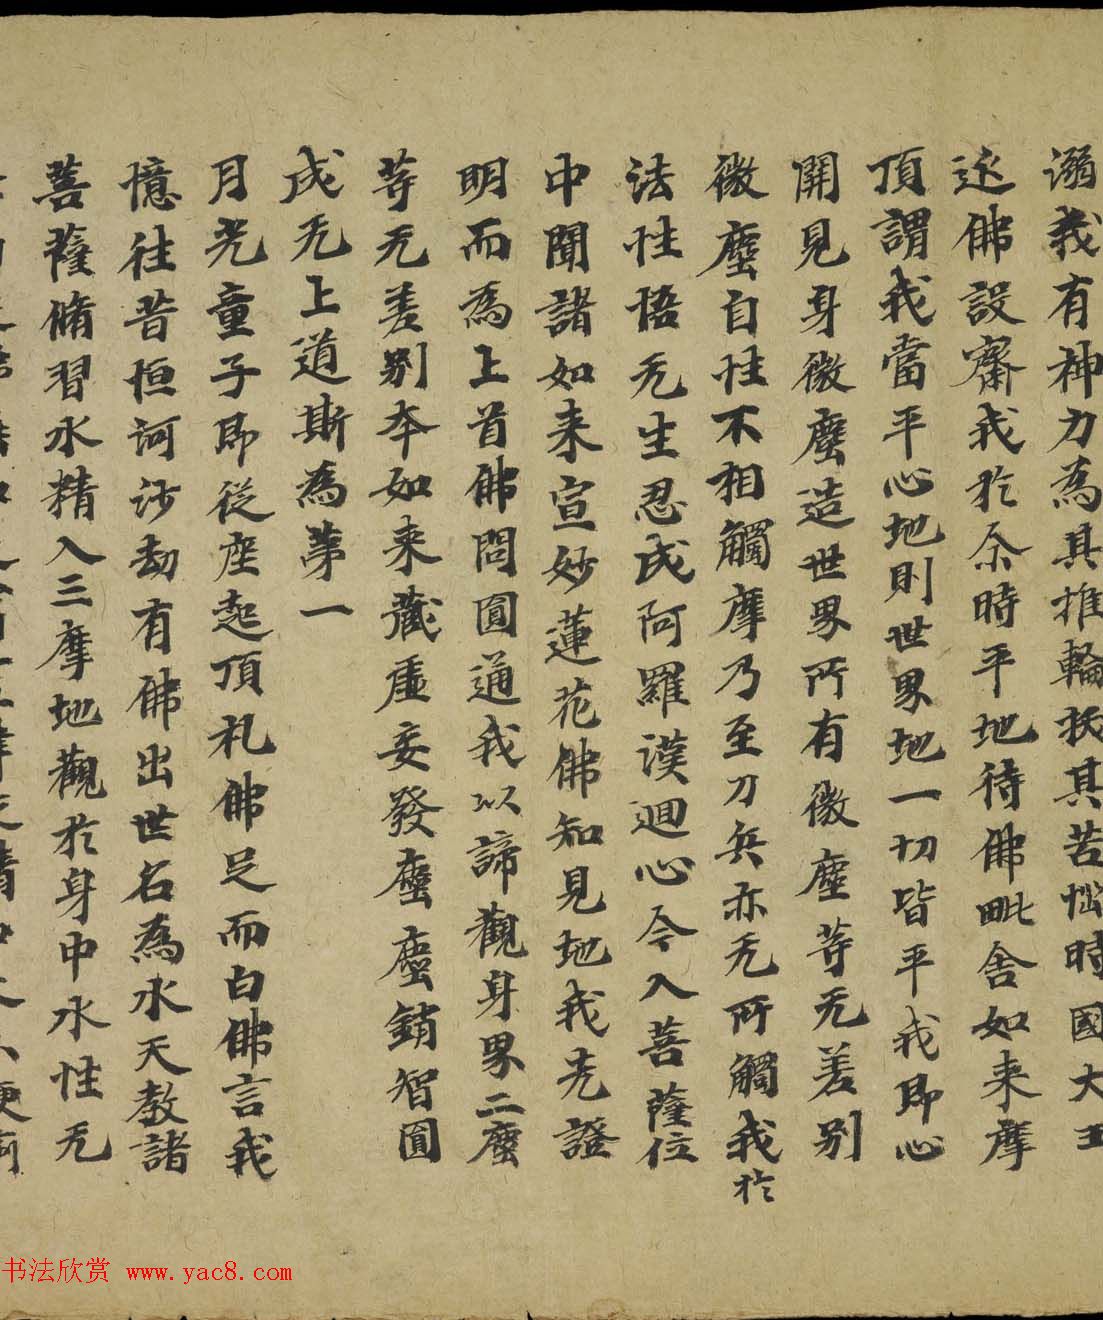 溺我有神力為其推輪拔其苦惱時國大王
延佛設齋我於尒時平地待佛毗舍如来摩
頂謂我當平心地則世界地一切皆平我即心
開見身微塵造世界所有微塵等无差別
微塵自性不相觸摩乃至刀兵亦无所觸我於
法性悟无生忍成阿羅漢迴心今入菩薩位
中聞諸如来宣妙蓮花佛知見地我先證
明而為上首佛問圓通我以諦觀身界二塵
等无差別本如来藏虛妄發塵塵銷智圓
成无上道斯為苐一
月光童子即從座起頂礼佛足而白佛言我
憶往昔恒河沙劫有佛出世名為水天教諸
菩薩脩習水精入三摩地觀於身中水性无
书法欣赏 www.yac8.com